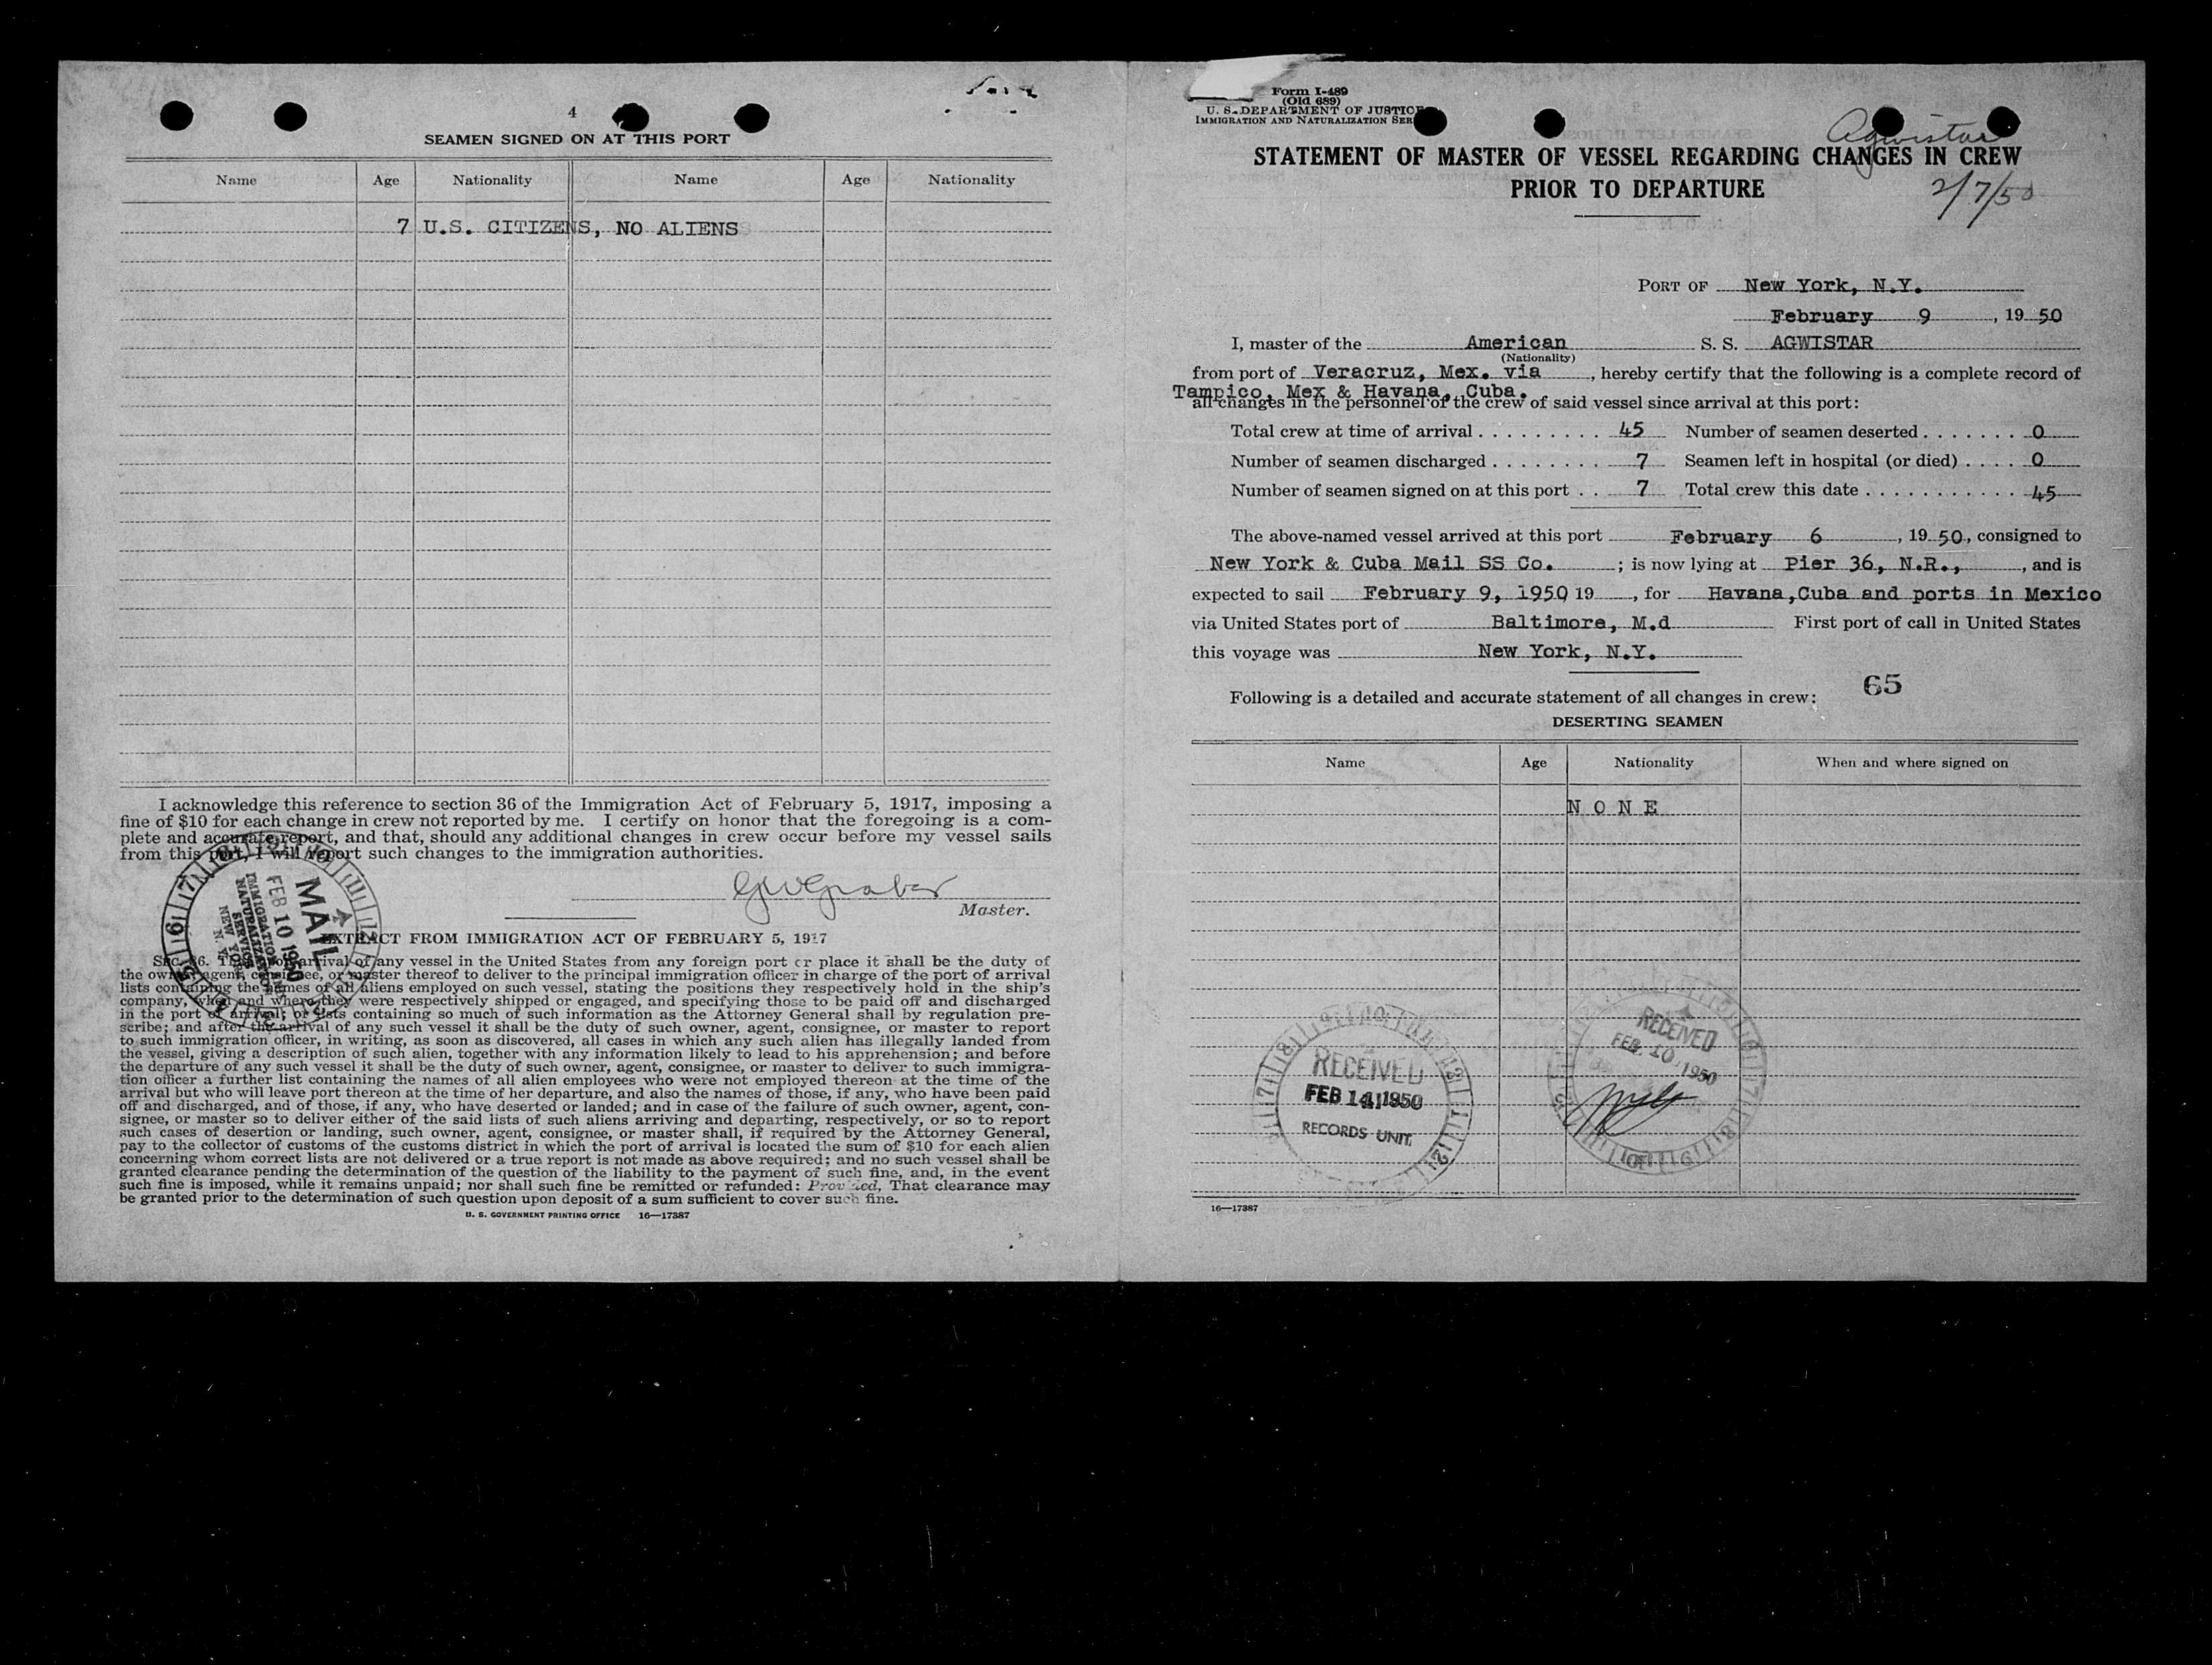 4
SEAMEN SIGNED ON AT THIS PORT
Name Age Nationality Name Age Nationality
7 U.S. CITIZENS, NO ALIENS
I acknowledge this reference to section 36 of the Immigration Act of February 5, 1917, imposing a
fine of $10 for each change in crew not reported by me. I certify on honor that the foregoing is a com-
plete and accurate report, and that, should any additional changes in crew occur before my vessel sails
from this port, I will report such changes to the immigration authorities.
GWGraber
Master.
MAIL
FEB 10 1950
IMMIGRATION AND
NATURALIZATION
SERVICE
NEW YORK
N.Y.
EXTRACT FROM IMMIGRATION ACT OF FEBRUARY 5, 1917
SEC. 36. That upon arrival of any vessel in the United States from any foreign port or place it shall be the duty of
the owner, agent, consignee, or master thereof to deliver to the principal immigration officer in charge of the port of arrival
lists containing the names of all aliens employed on such vessel, stating the positions they respectively hold in the ship's
company, when and where they were respectively shipped or engaged, and specifying those to be paid off and discharged
in the port of arrival; or lists containing so much of such information as the Attorney General shall by regulation pre-
scribe; and after the arrival of any such vessel it shall be the duty of such owner, agent, consignee, or master to report
to such immigration officer, in writing, as soon as discovered, all cases in which any such alien has illegally landed from
the vessel, giving a description of such alien, together with any information likely to lead to his apprehension; and before
the departure of any such vessel it shall be the duty of such owner, agent, consignee, or master to deliver to such immigra-
tion officer a further list containing the names of all alien employees who were not employed thereon at the time of the
arrival but who will leave port thereon at the time of her departure, and also the names of those, if any, who have been paid
off and discharged, and of those, if any, who have deserted or landed; and in case of the failure of such owner, agent, con-
signee, or master so to deliver either of the said lists of such aliens arriving and departing, respectively, or so to report
such cases of desertion or landing, such owner, agent, consignee, or master shall, if required by the Attorney General,
pay to the collector of customs of the customs district in which the port of arrival is located the sum of $10 for each alien
concerning whom correct lists are not delivered or a true report is not made as above required; and no such vessel shall be
granted clearance pending the determination of the question of the liability to the payment of such fine, and, in the event
such fine is imposed, while it remains unpaid; nor shall such fine be remitted or refunded: Provided, That clearance may
be granted prior to the determination of such question upon deposit of a sum sufficient to cover such fine.
U. S. GOVERNMENT PRINTING OFFICE 16—17387
Form I-489
(Old 689)
U. S. DEPARTMENT OF JUSTICE
IMMIGRATION AND NATURALIZATION SER
Agwistar
STATEMENT OF MASTER OF VESSEL REGARDING CHANGES IN CREW
PRIOR TO DEPARTURE
2/7/50
PORT OF New York, N.Y.
February 9, 19 50
I, master of the American S. S. AGWISTAR
(Nationality)
from port of Veracruz, Mex. via, hereby certify that the following is a complete record of
Tampico, Mex & Havana, Cuba.
all changes in the personnel of the crew of said vessel since arrival at this port:
Total crew at time of arrival . . . . . . . . . 45 Number of seamen deserted . . . . . . . 0
Number of seamen discharged . . . . . . . . 7 Seamen left in hospital (or died) . . . . 0
Number of seamen signed on at this port . . 7 Total crew this date . . . . . . . . . . . . 45
The above-named vessel arrived at this port February 6, 19 50, consigned to
New York & Cuba Mail SS Co. ; is now lying at Pier 36, N.R., , and is
expected to sail February 9, 1950 19 , for Havana,Cuba and ports in Mexico
via United States port of Baltimore, M.d First port of call in United States
this voyage was New York, N.Y.
65
Following is a detailed and accurate statement of all changes in crew:
DESERTING SEAMEN
Name Age Nationality When and where signed on
N O N E
RECEIVED
FEB. 10 1950
RECEIVED
FEB 14 1950
RECORDS UNIT
16—17387